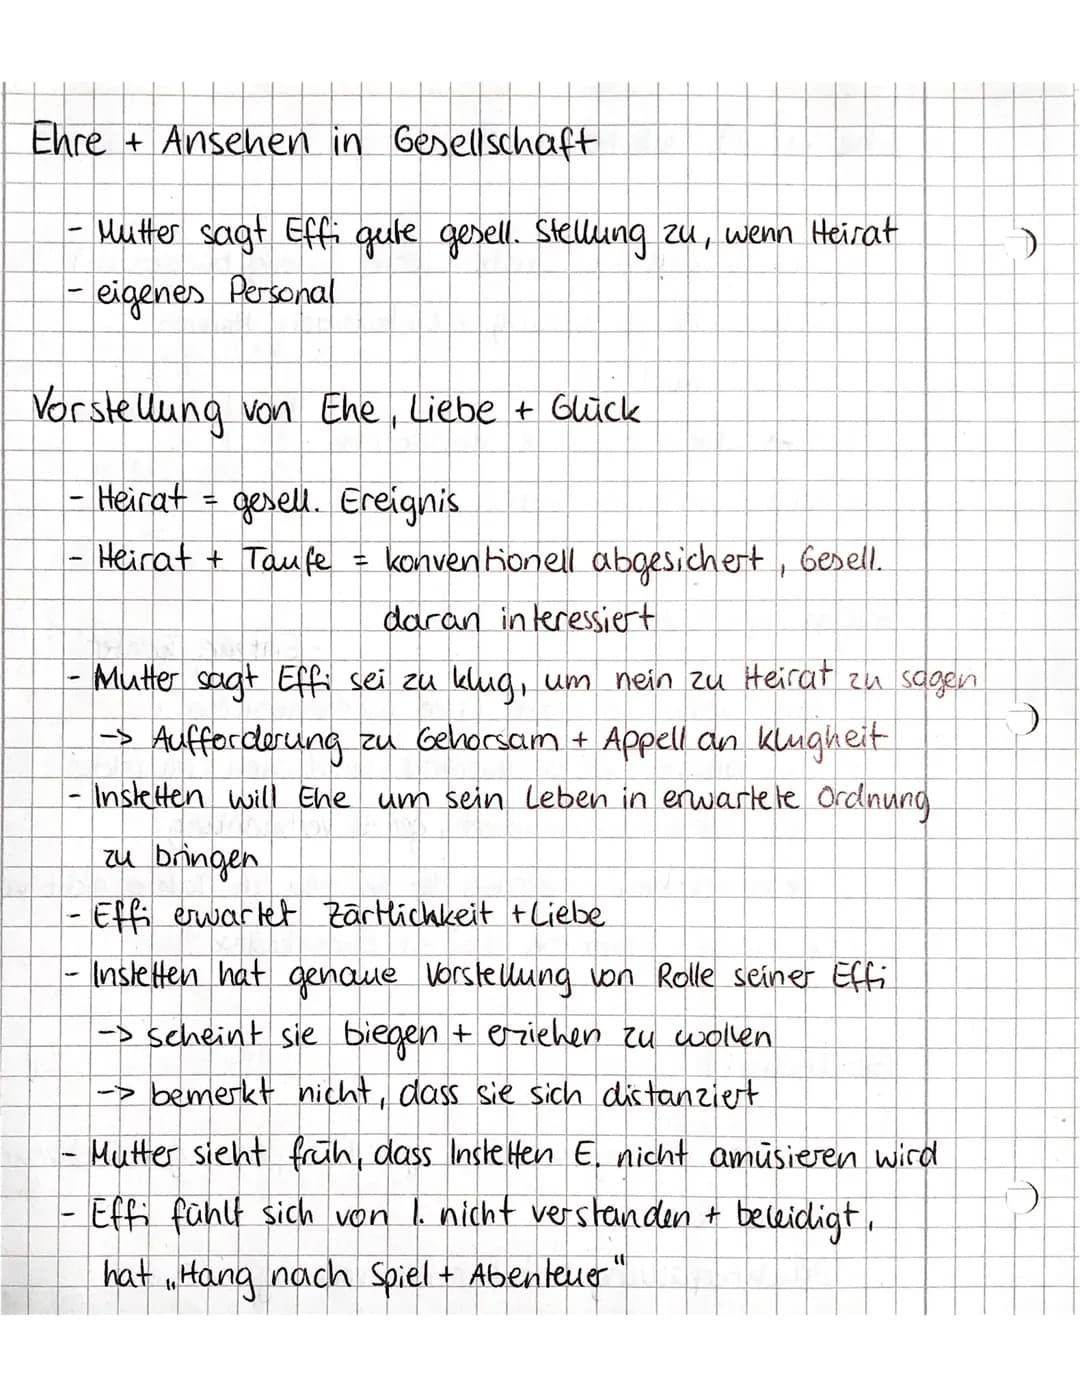 Ehre + Ansehen in Gesellschaft
- Mutter sagt Effi gute gesell. Stellung zu, wenn Heirat
- eigenes Personal
Vorstellung von Ehe, Liebe + Glück
- Heirat = gesell. Ereignis
- Heirat + Taufe = konventionell abgesichert, Gesell.
daran interessiert
- Mutter sagt Effi sei zu klug, um nein zu Heirat zu sagen
-> Aufforderung zu Gehorsam + Appell an Klugheit
- Instetten will Ehe um sein Leben in erwartete Ordnung
zu bringen
- Effi erwartet Zärtlichkeit + Liebe
- Instetten hat genaue Vorstellung von Rolle seiner Effi
-> scheint sie biegen + erziehen zu wollen
-> bemerkt nicht, dass sie sich distanziert
- Mutter sieht früh, dass Instetten E. nicht amüsieren wird
- Effi fühlt sich von I. nicht verstanden + beleidigt,
hat „Hang nach Spiel + Abenteuer"